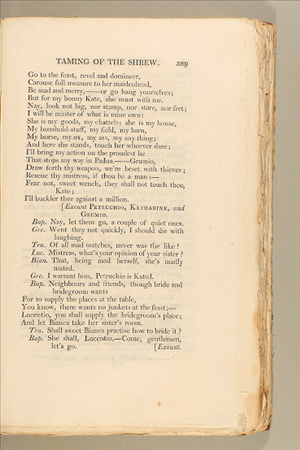 TAMING OF THE SHREW. 389
Go to the feast, revel and domineer,
Carouse full measure to her maidenhead,
Be mad and merry,——or go hang yourselves;
But for my bonny Kate, she must with me.
Nay, look not big, nor stamp, nor stare, nor fret;
I will be master of what is mine own:
She is my goods, my chattels; she is my house,
My houshold-stuff, my field, my barn,
My horse, my ox, my ass, my any thing;
And here she stands, touch her whoever dare;
I'll bring my action on the proudest he
That stops my way in Padua.——Grumio,
Draw forth thy weapon, we're beset with thieves;
Rescue thy mistress, if thou be a man:—
Fear not, sweet wench, they shall not touch thee,
Kate;
I'll buckler thee against a million.
[Exeunt PETRUCHIO, KATHARINE, and
GRUMIO.
Bap. Nay, let them go, a couple of quiet ones.
Gre. Went they not quickly, I should die with
laughing.
Tra. Of all mad matches, never was the like!
Luc. Mistress, what's your opinion of your sister?
Bian. That, being mad herself, she's madly
mated.
Gre. I warrant him, Petruchio is Kated.
Bap. Neighbours and friends, though bride and
bridegroom wants
For to supply the places at the table,
You know, there wants no junkets at the feast;—
Lucentio, you shall supply the bridegroom's place;
And let Bianca take her sister's room.
Tra. Shall sweet Bianca practise how to bride it?
Bap. She shall, Lucentio.—Come, gentlemen,
let's go. [Exeunt.